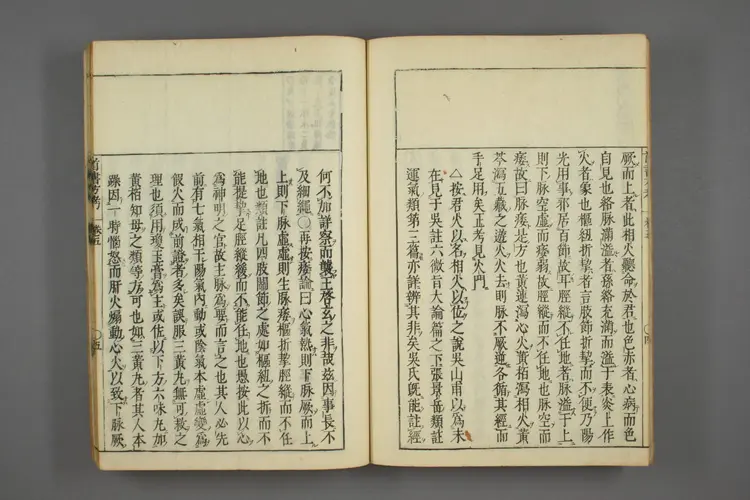 厥而上者此相火變命於君也色赤者心病而色
自見也絡脉溢者孫絡充滿而溢于表炎上作
火者象也樞紐折挈者言肢節折挈而不便乃陽
光用事邪居百節故耳脛縱不任地者脉溢于上
則下脉空虛而痿弱故脛縱而不任地也脉空而
痿故曰脉痿是方也黃連瀉心火黃栢瀉相火黃
芩瀉五藏之遊火火去則脉不厥逆各循其經而
手足用矣正考見火門
△按君火以名相火以位之說吳山甫以爲未
在見于吳註六微旨大論篇之下張景岳類註
運氣類第三篇亦詳辨其非矣吳氏旣能註經
何不加詳察而襲王啓玄之非故玆因事長不
及細繩○再按痿論曰心氣熱則下脉厥而上
上則下脉虛虛則生脉痿樞折挈脛縱而不任
地也類註凡四肢關節之處如樞紐之折而不
能提挈足脛縱緩而不能任地也愚按此以心
爲神明之官故主脉爲要而言之也其人必先
前有七氣相干陽氣內動或陰氣本虛虛變爲
假火而成前證者多矣誤服三黃丸無可救之
理也須用瓊玉膏爲主或佐以下方六味丸加
黃栢知母之類等方可也如三黃丸者其人本
躁因一時惱怒而肝火煽動心火以致下脉厥